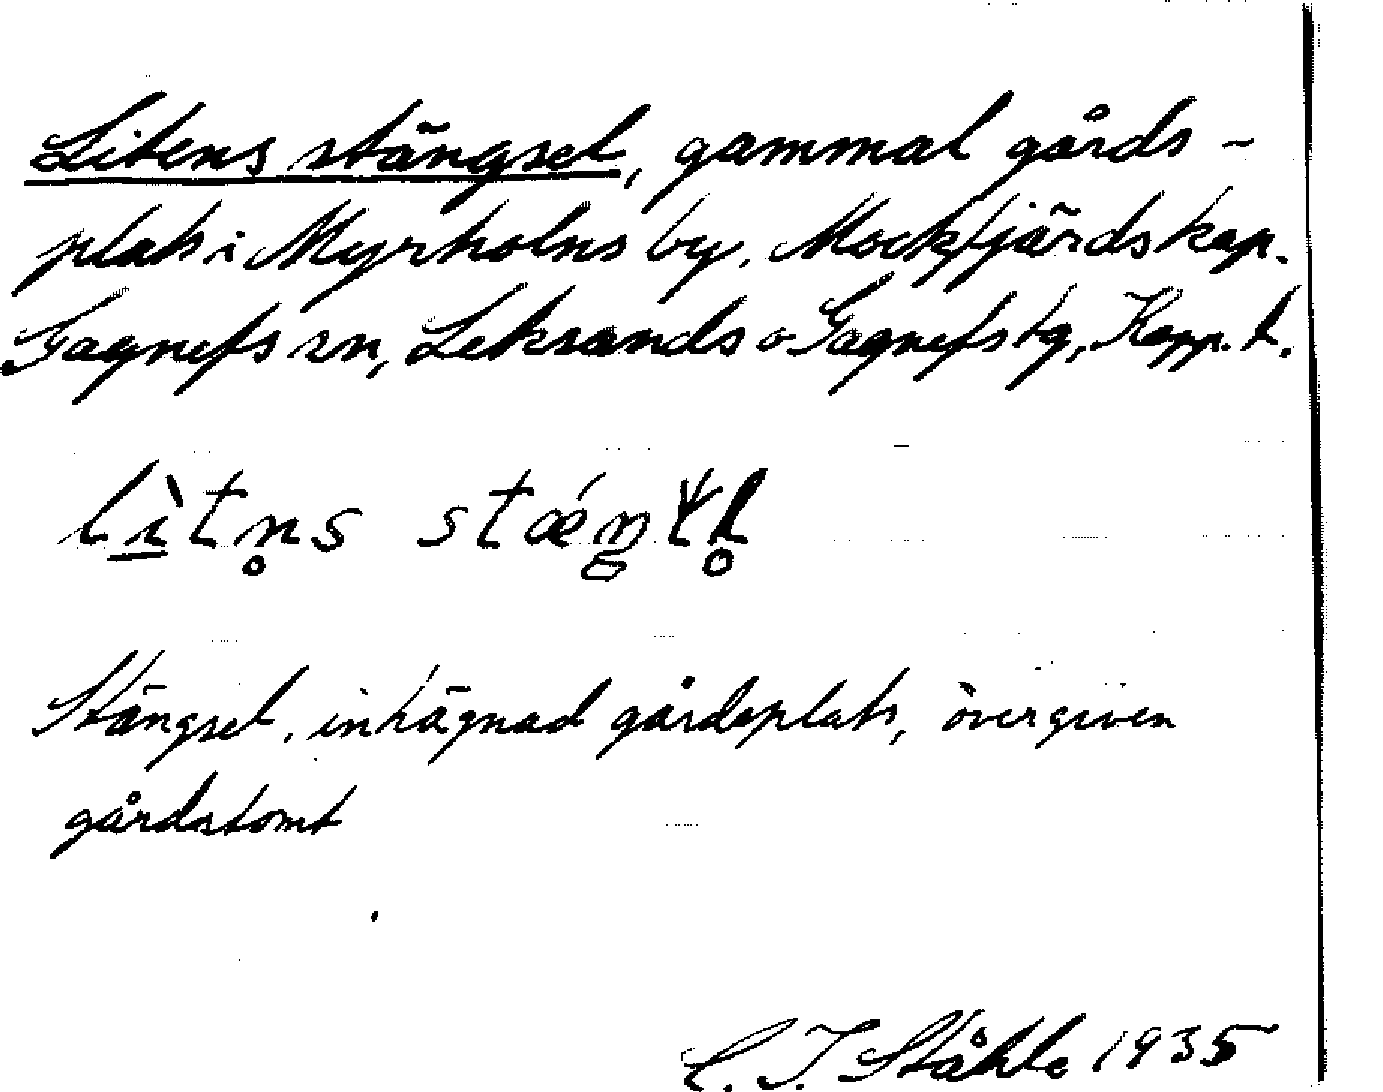 Litens stängsel, gammal gårds-
plats i Myrholns by, Mockfjärds kap.
Gagnefs sn, Leksands o Gagnefs tg, Kopp. l.
lì̠tn̥s stǽŋ
Stängsel, inhägnad gårdsplats, övergiven
gårdstomt
C. I. Ståhle 1935